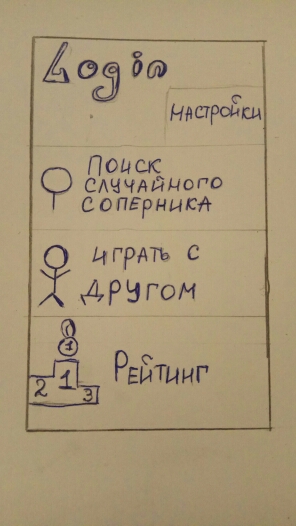 Login
НАСТРОЙКИ
ПОИСК
СЛУЧАЙНОГО
СОПЕРНИКА
ИГРАТЬ С
ДРУГОМ
1
РЕЙТИНГ
2 1 3